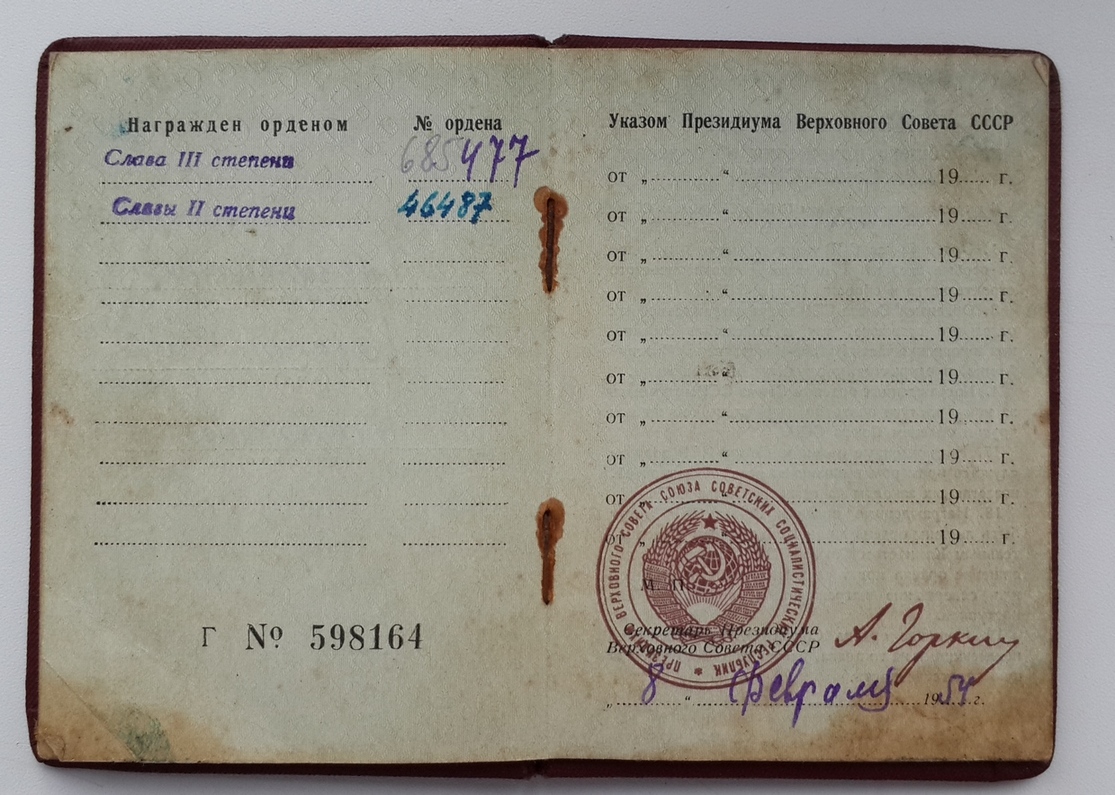 Награжден орденом
№ ордена
Слава III степени
685477
Славы II степени
46487
Г № 598164
Указом Президиума Верховного Совета СССР
от „ “ 19 г.
от „ “ 19 г.
от „ “ 19 г.
от „ “ 19 г.
от „ “ 19 г.
от „ “ 19 г.
от „ “ 19 г.
от „ “ 19 г.
от „ “ 19 г.
от „ “ 19 г.
ПРЕЗИДИУМ ВЕРХОВНОГО СОВЕТА СОЮЗА СОВЕТСКИХ СОЦИАЛИСТИЧЕСКИХ РЕСПУБЛИК
М. П.
Секретарь Президиума
Верховного Совета СССР
А. Горкин
„ 8 “ февраля 1954 г.